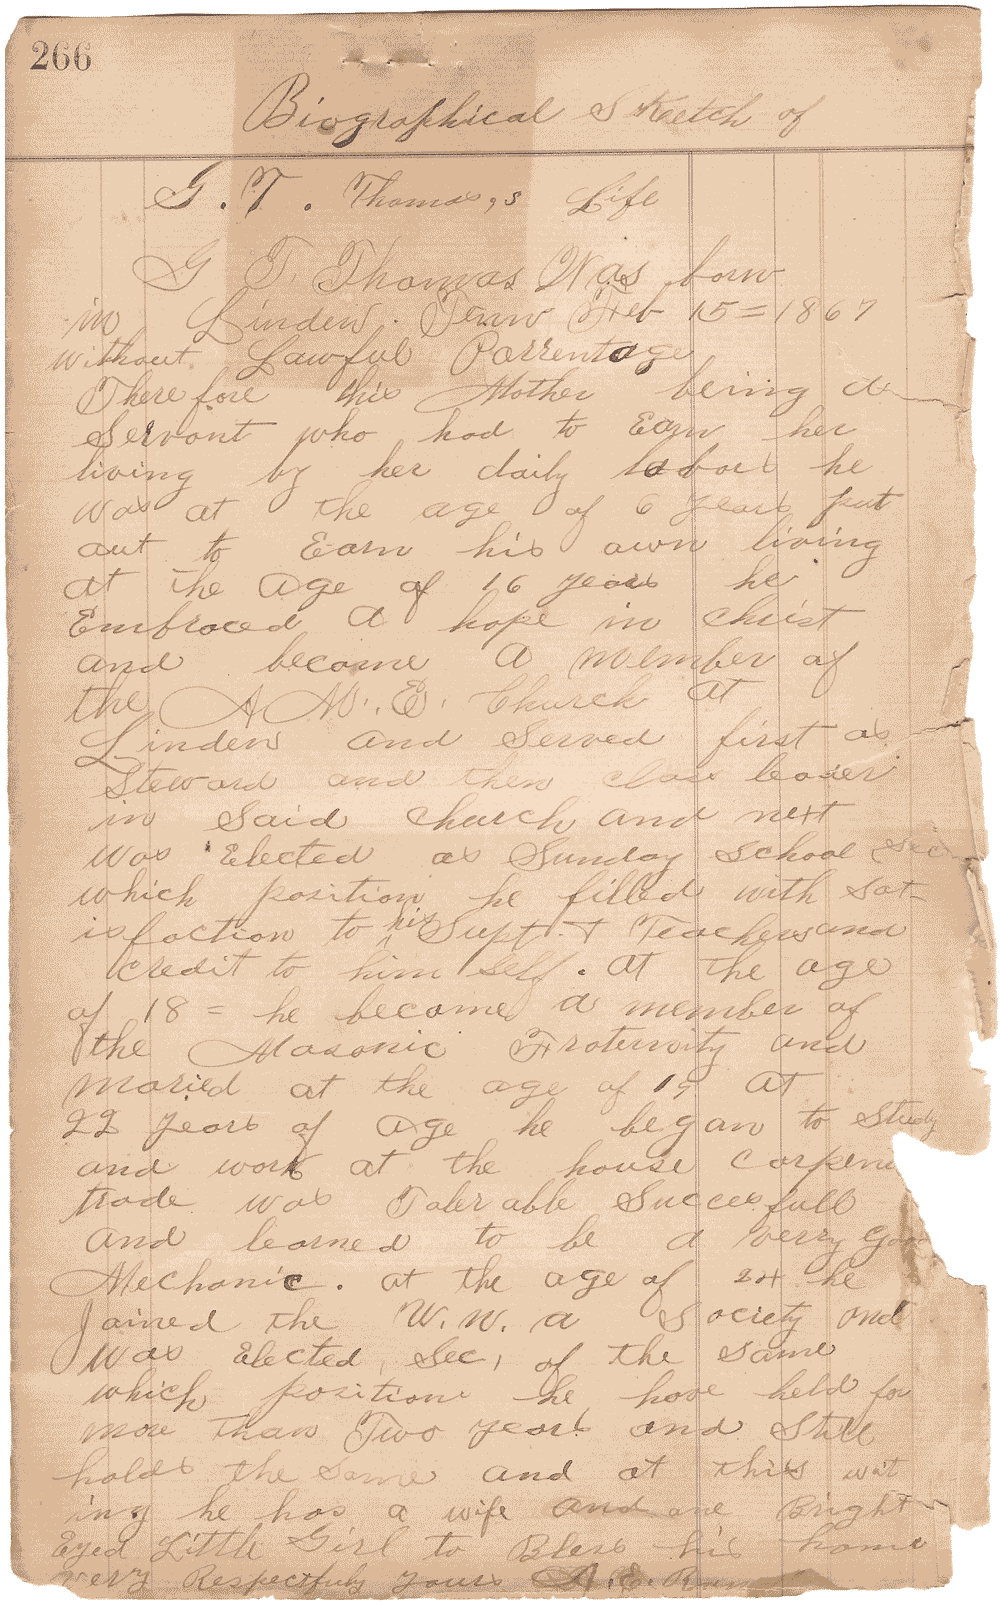 266
Biographical Sketch of
G. T. Thomas,s Life
G T. Thomas Was born
in Linden. Tenn Feb 15=1867
without Lawful Parrentage
Therefore this Mother being a
Servant who had to Earn her
living by her daily labors he
was at the age of 6 years put
out to Earn his own living
at the age of 16 years he
Embraced a hope in Christ
and became a member of
the A M. E. Church at
Linden and Served first as
Steward and then class leader
in Said church and next
was Elected as Sunday School Sec
which position he filled with sat-
isfaction to his Supt. + Teachers and
credit to him self. at the age
of 18= he became a member of
the Masonic Fraternity and
maried at the age of 19 at
22 years of age he began to Study
and work at the house carpen
trade was Tolerable Succesfull
and learned to be a verry goo
Mechanic. at the age of 24 he
Joined the W. W. a Society and
was Elected Sec, of the same
which position he have held for
more than Two years and Still
holds the same and at this writ
ing he has a wife and one Bright
Eyed Little Girl to Bless his home
very Respectfuly yours A. E.